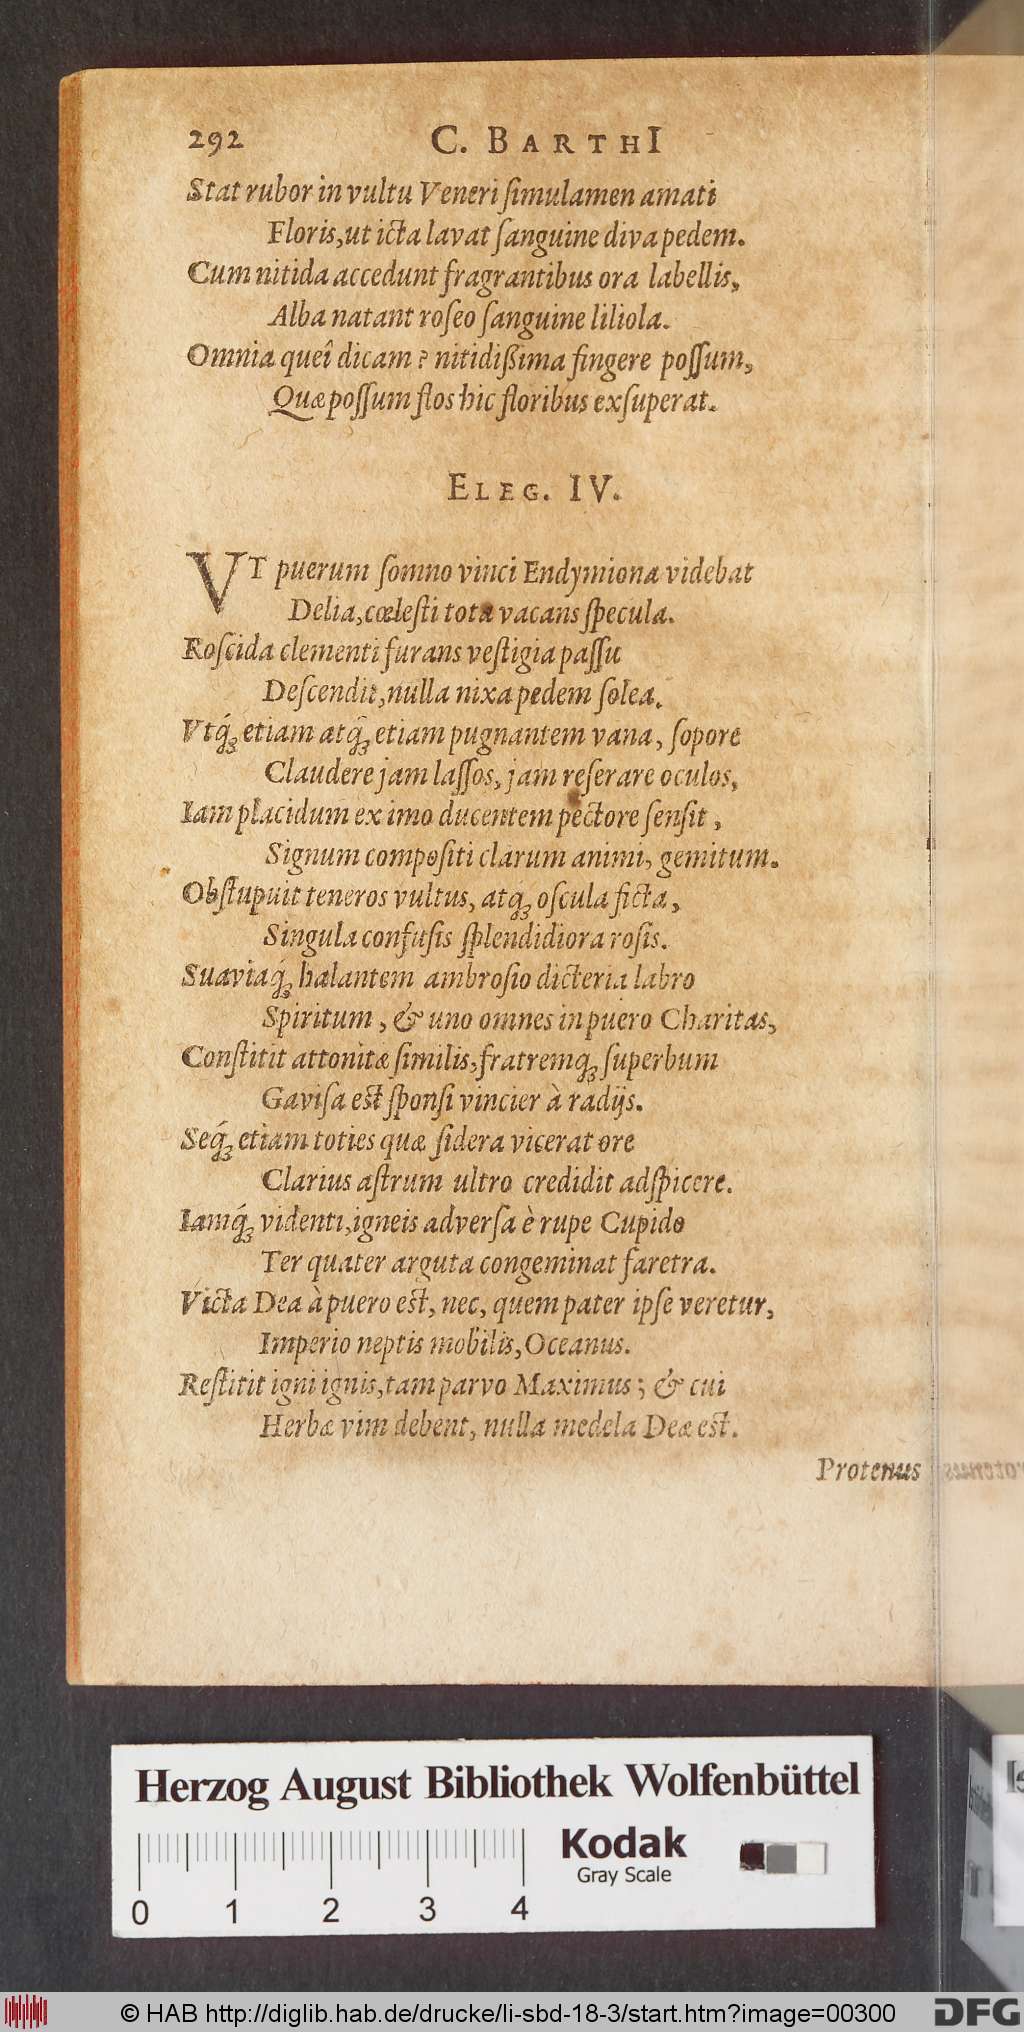 292 C. BARTHI
Stat rubor in vultu Veneri ſimulamen amati
Floris, ut icta lavat ſanguine diva pedem.
Cum nitida accedunt fragrantibus ora labellis,
Alba natant roſeo ſanguine liliola.
Omnia queî dicam? nitidißima fingere poſſum,
Quæ poſſum flos hic floribus exſuperat.
ELEG. IV.
VT puerum ſomno vinci Endymiona videbat
Delia, cœleſti tota vacans ſpecula.
Roſcida clementi furans veſtigia paſſu
Deſcendit, nulla nixa pedem ſolea.
Vtq́ꝫ etiam atq́ꝫ etiam pugnantem vana, ſopore
Claudere jam laſſos, jam reſerare oculos,
Iam placidum ex imo ducentem pectore ſenſit,
Signum compoſiti clarum animi, gemitum.
Obſtupuit teneros vultus, atq́ꝫ oſcula ficta,
Singula confuſis ſplendidiora roſis.
Suaviaq́ꝫ halantem ambroſio dicteria labro
Spiritum, & uno omnes in puero Charitas,
Conſtitit attonitæ ſimilis, fratremq́ꝫ ſuperbum
Gaviſa eſt ſponſi vincier à radijs.
Seq́ꝫ etiam toties quæ ſidera vicerat ore
Clarius aſtrum ultro credidit adſpicere.
Iamq́ꝫ videnti, igneis adverſa è rupe Cupido
Ter quater arguta congeminat faretra.
Victa Dea à puero eſt, nec, quem pater ipſe veretur,
Imperio neptis mobilis, Oceanus.
Reſtitit igni ignis, tam parvo Maximus; & cui
Herbæ vim debent, nulla medela Deæ eſt.
Protenus
Herzog August Bibliothek Wolfenbüttel
Kodak
Gray Scale
0 1 2 3 4
© HAB http://diglib.hab.de/drucke/li-sbd-18-3/start.htm?image=00300 DFG